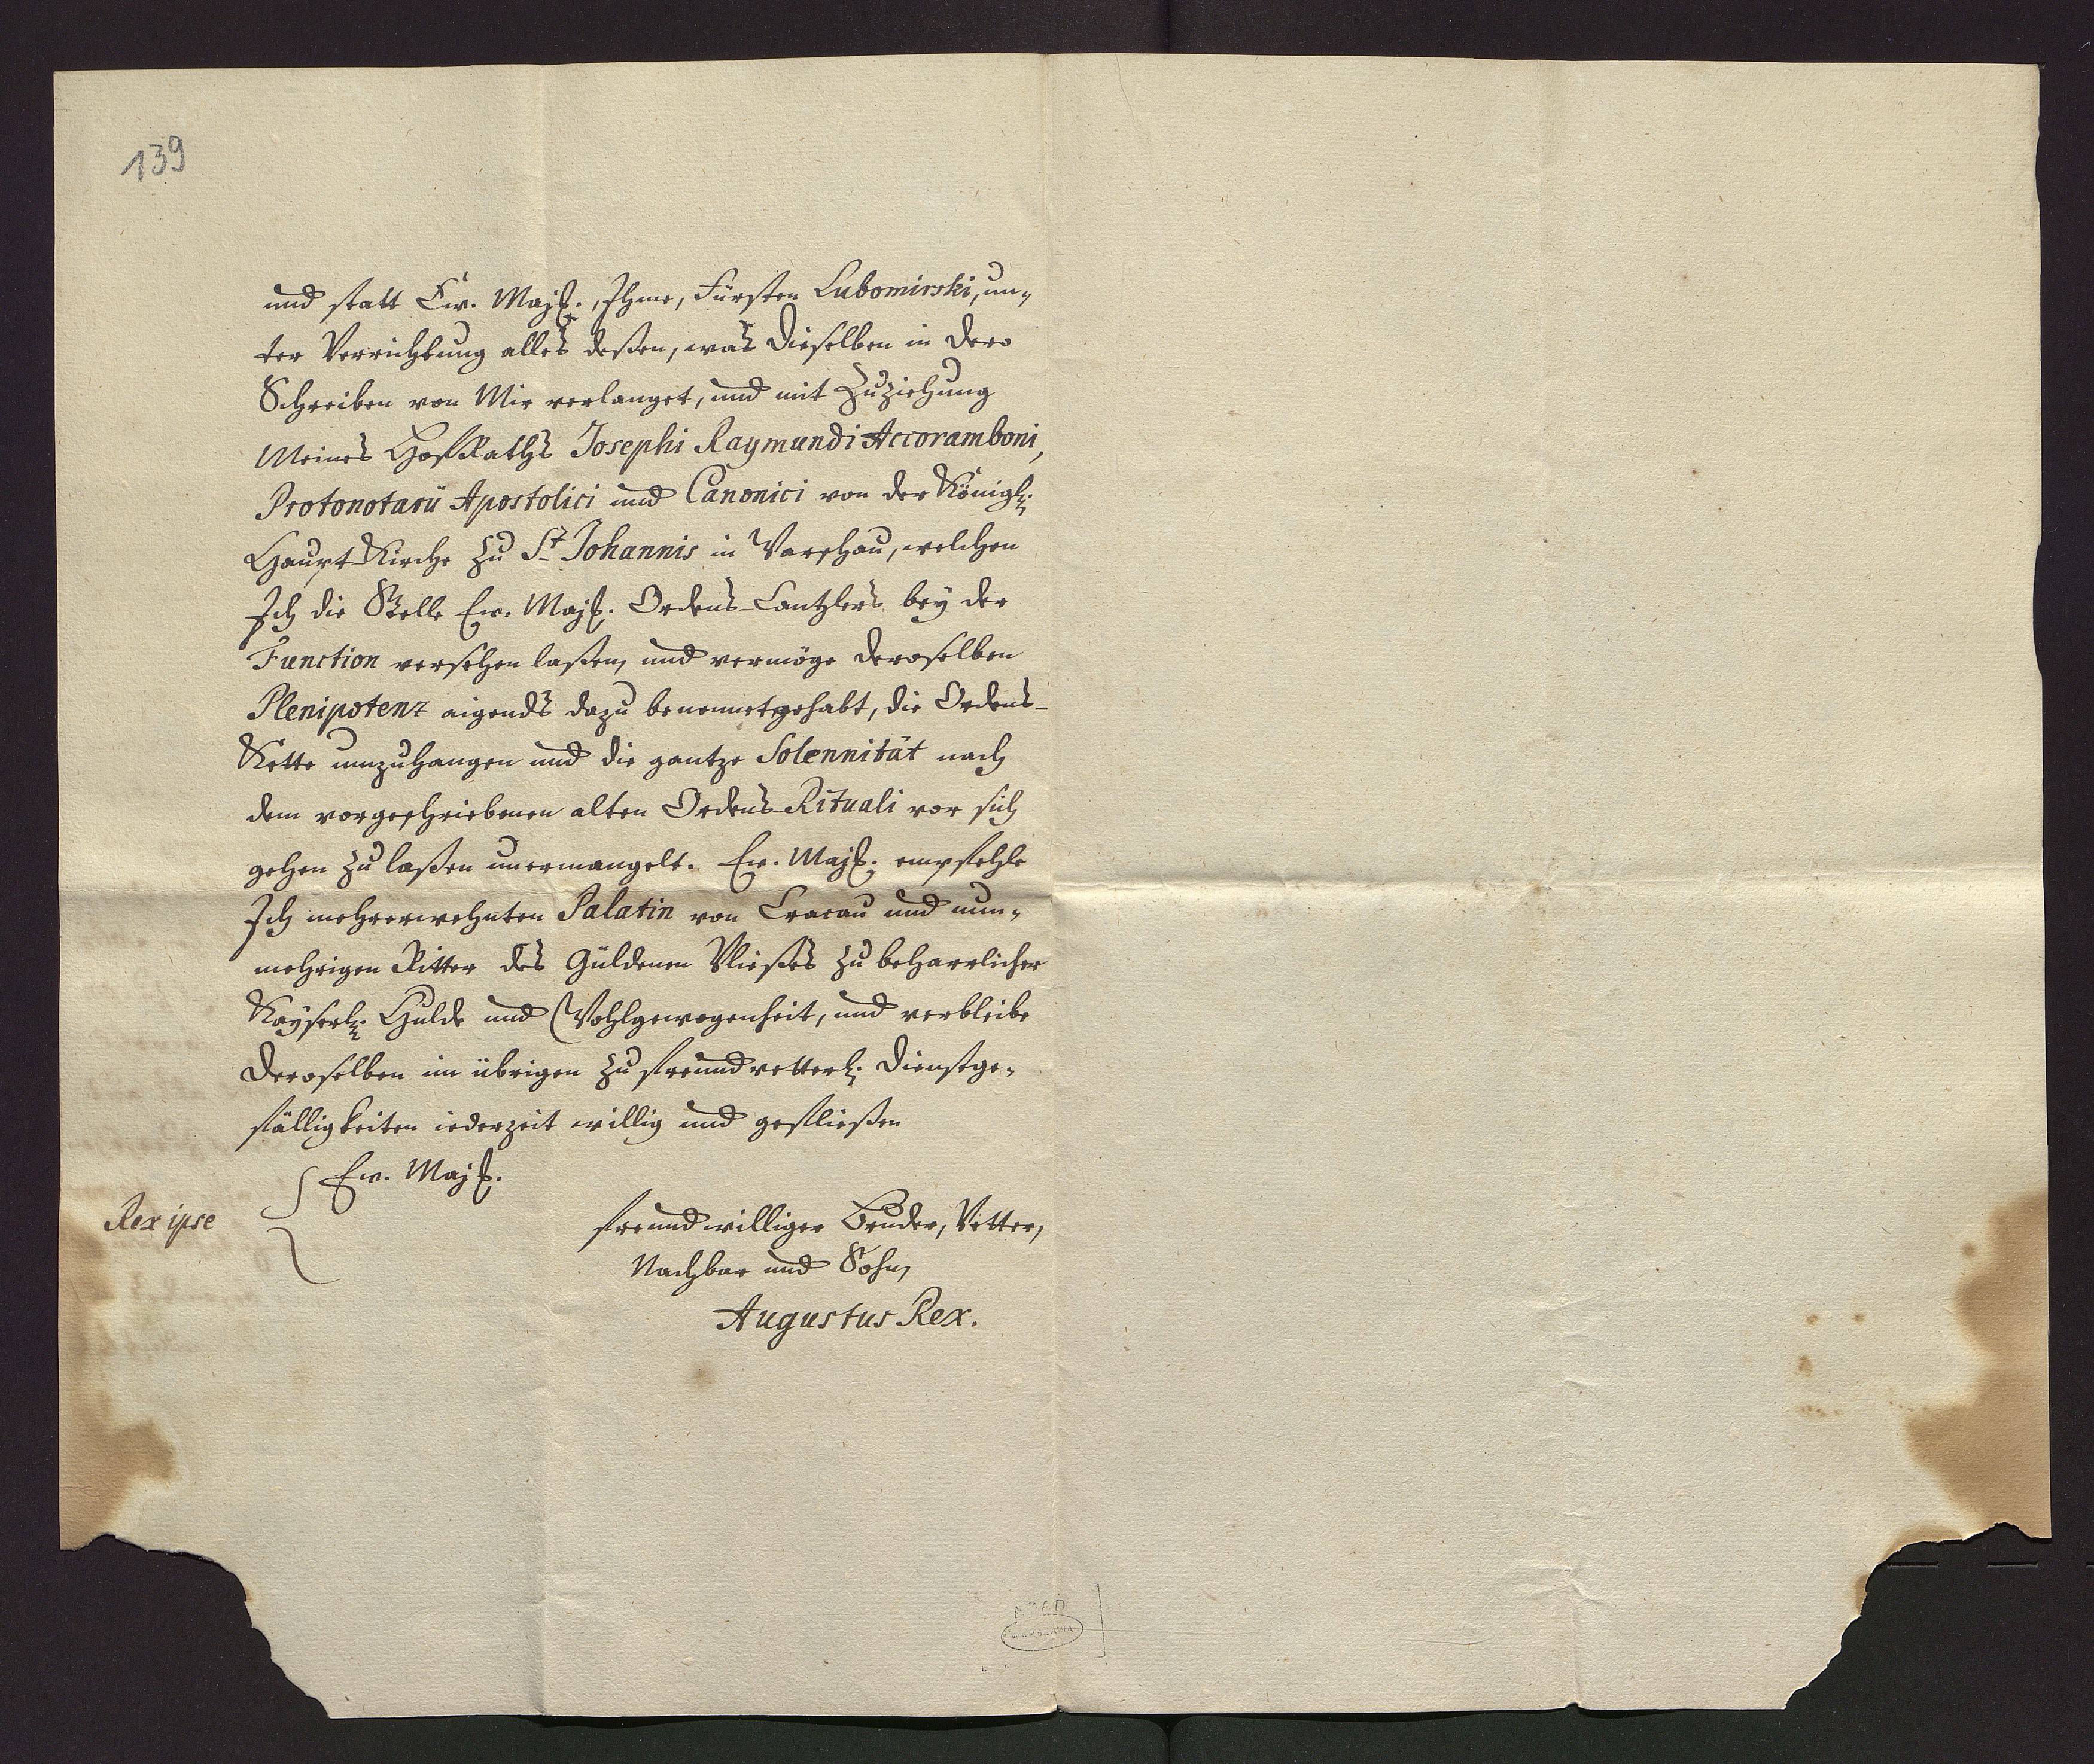 139
und statt Ew. Majt., Ihme, Fürsten Lubomirski, un-
ter Verrichtung alles deßen, was Dieselben in Dero
Schreiben von Mir verlanget, und mit Zuziehung
Meines HofRaths Josephi Raymundi Accoramboni,
Protonotarii Apostolici und Canonici von der Königl.
Haupt-Kirche zu St. Johannis in Warschau, welchen
Ich die Stelle Ew. Majt. Ordens-Cantzlers bey der
Function versehen laßen, und vermöge Deroselben
Plenipotenz aigends dazu benennet gehabt, die Ordens-
Kette umzuhangen und die gantze Solennität nach
dem vorgeschriebenen alten Ordens-Rituali vor sich
gehen zu laßen unermangelt. Ew. Majt. empfehle
Ich mehrerwehnten Palatin von Cracau und nun-
mehrigen Ritter des Güldenen Vließes zu beharrlicher
Kayserl. Hulde und Wohlgewogenheit, und verbleibe
Deroselben im übrigen zu freundvetterl. Dienstge-
fälligkeiten iederzeit willig und gefließen
Ew. Majt.
Rex ipse
freundwilliger Bruder, Vetter,
Nachbar und Sohn,
Augustus Rex.
AGAD
WARSZAWA